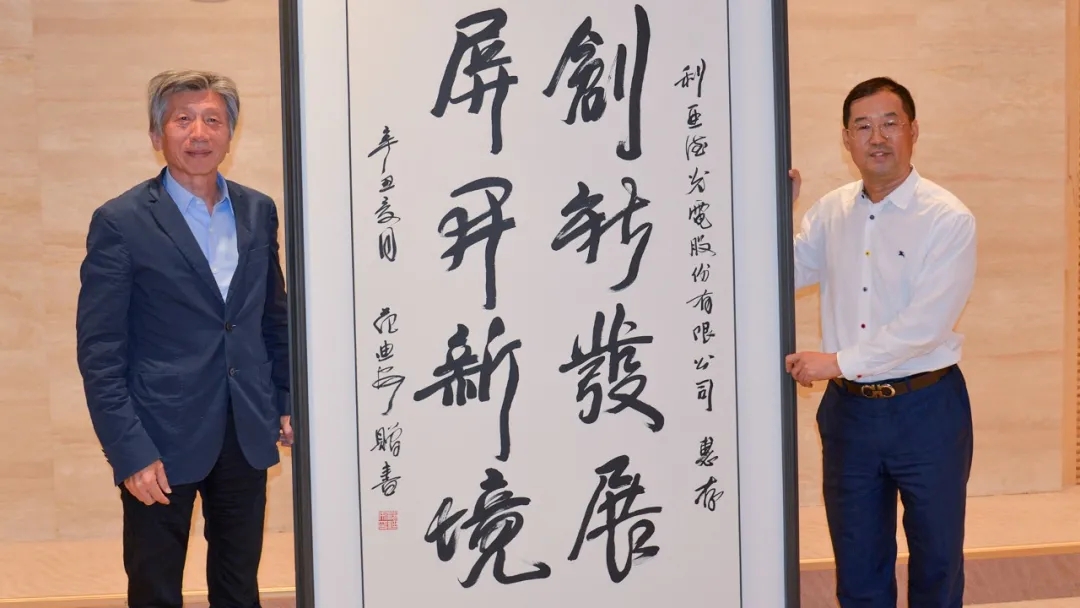 利亚德光電股份有限公司 惠存
創新發展
屏开新境
辛丑夏月 范迪安贈書